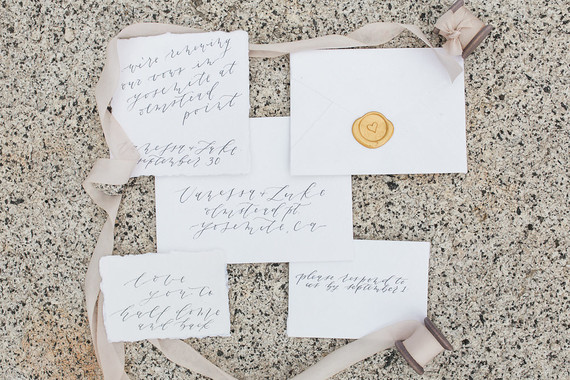 we're renewing
our vows in
yosemite at
olmstead
point
Vanessa + Luke
september 30
Vanessa + Luke
olmstead pt.
yosemite, ca
love
you to
half dome
and back
please respond to
us by september 1